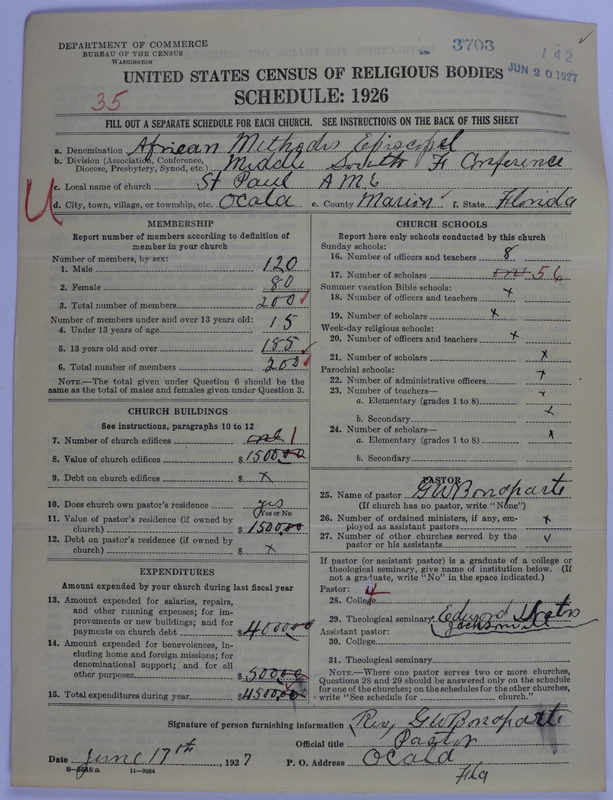 DEPARTMENT OF COMMERCE
BUREAU OF THE CENSUS
WASHINGTON
3703
142
JUN 20 1927
UNITED STATES CENSUS OF RELIGIOUS BODIES
35
SCHEDULE: 1926
FILL OUT A SEPARATE SCHEDULE FOR EACH CHURCH. SEE INSTRUCTIONS ON THE BACK OF THIS SHEET
a. Denomination African Methodis Episcipel
b. Division (Association, Conference, Diocese, Presbytery, Synod, etc.) Middle South Fl Conference
c. Local name of church St Paul A M E
d. City, town, village, or township, etc. Ocala e. County Marion f. State Florida
MEMBERSHIP
Report number of members according to definition of
member in your church
Number of members, by sex:
1. Male 120
2. Female 80
3. Total number of members 200
Number of members under and over 13 years old:
4. Under 13 years of age 15
5. 13 years old and over 185
6. Total number of members 200
NOTE.—The total given under Question 6 should be the
same as the total of males and females given under Question 3.
CHURCH BUILDINGS
See instructions, paragraphs 10 to 12
7. Number of church edifices one 1
8. Value of church edifices $1500.00
9. Debt on church edifices $ x
10. Does church own pastor's residence yes
(Yes or No)
11. Value of pastor's residence (if owned by
church) $1500.00
12. Debt on pastor's residence (if owned by
church) $ x
EXPENDITURES
Amount expended by your church during last fiscal year
13. Amount expended for salaries, repairs,
and other running expenses; for im-
provements or new buildings; and for
payments on church debt $4000.00
14. Amount expended for benevolences, in-
cluding home and foreign missions; for
denominational support; and for all
other purposes $500.00
15. Total expenditures during year $4500.00
CHURCH SCHOOLS
Report here only schools conducted by this church
Sunday schools:
16. Number of officers and teachers 8
17. Number of scholars 56
Summer vacation Bible schools:
18. Number of officers and teachers x
19. Number of scholars x
Week-day religious schools:
20. Number of officers and teachers x
21. Number of scholars x
Parochial schools:
22. Number of administrative officers x
23. Number of teachers—
a. Elementary (grades 1 to 8) x
b. Secondary x
24. Number of scholars—
a. Elementary (grades 1 to 8) x
b. Secondary
PASTOR
25. Name of pastor G W Bonaparte
(If church has no pastor, write "None")
26. Number of ordained ministers, if any, em-
ployed as assistant pastors x
27. Number of other churches served by the
pastor or his assistants v
If pastor (or assistant pastor) is a graduate of a college or
theological seminary, give name of institution below. (If
not a graduate, write "No" in the space indicated.)
Pastor: 4
28. College
29. Theological seminary Edward Waters
Jacksonville
Assistant pastor:
30. College
31. Theological seminary
NOTE.—Where one pastor serves two or more churches,
Questions 28 and 29 should be answered only on the schedule
for one of the churches; on the schedules for the other churches,
write "See schedule for church."
Signature of person furnishing information Rev, G W Bonaparte
Official title Pastor
Date June 17th, 1927 P. O. Address Ocala
Fla
11—3684